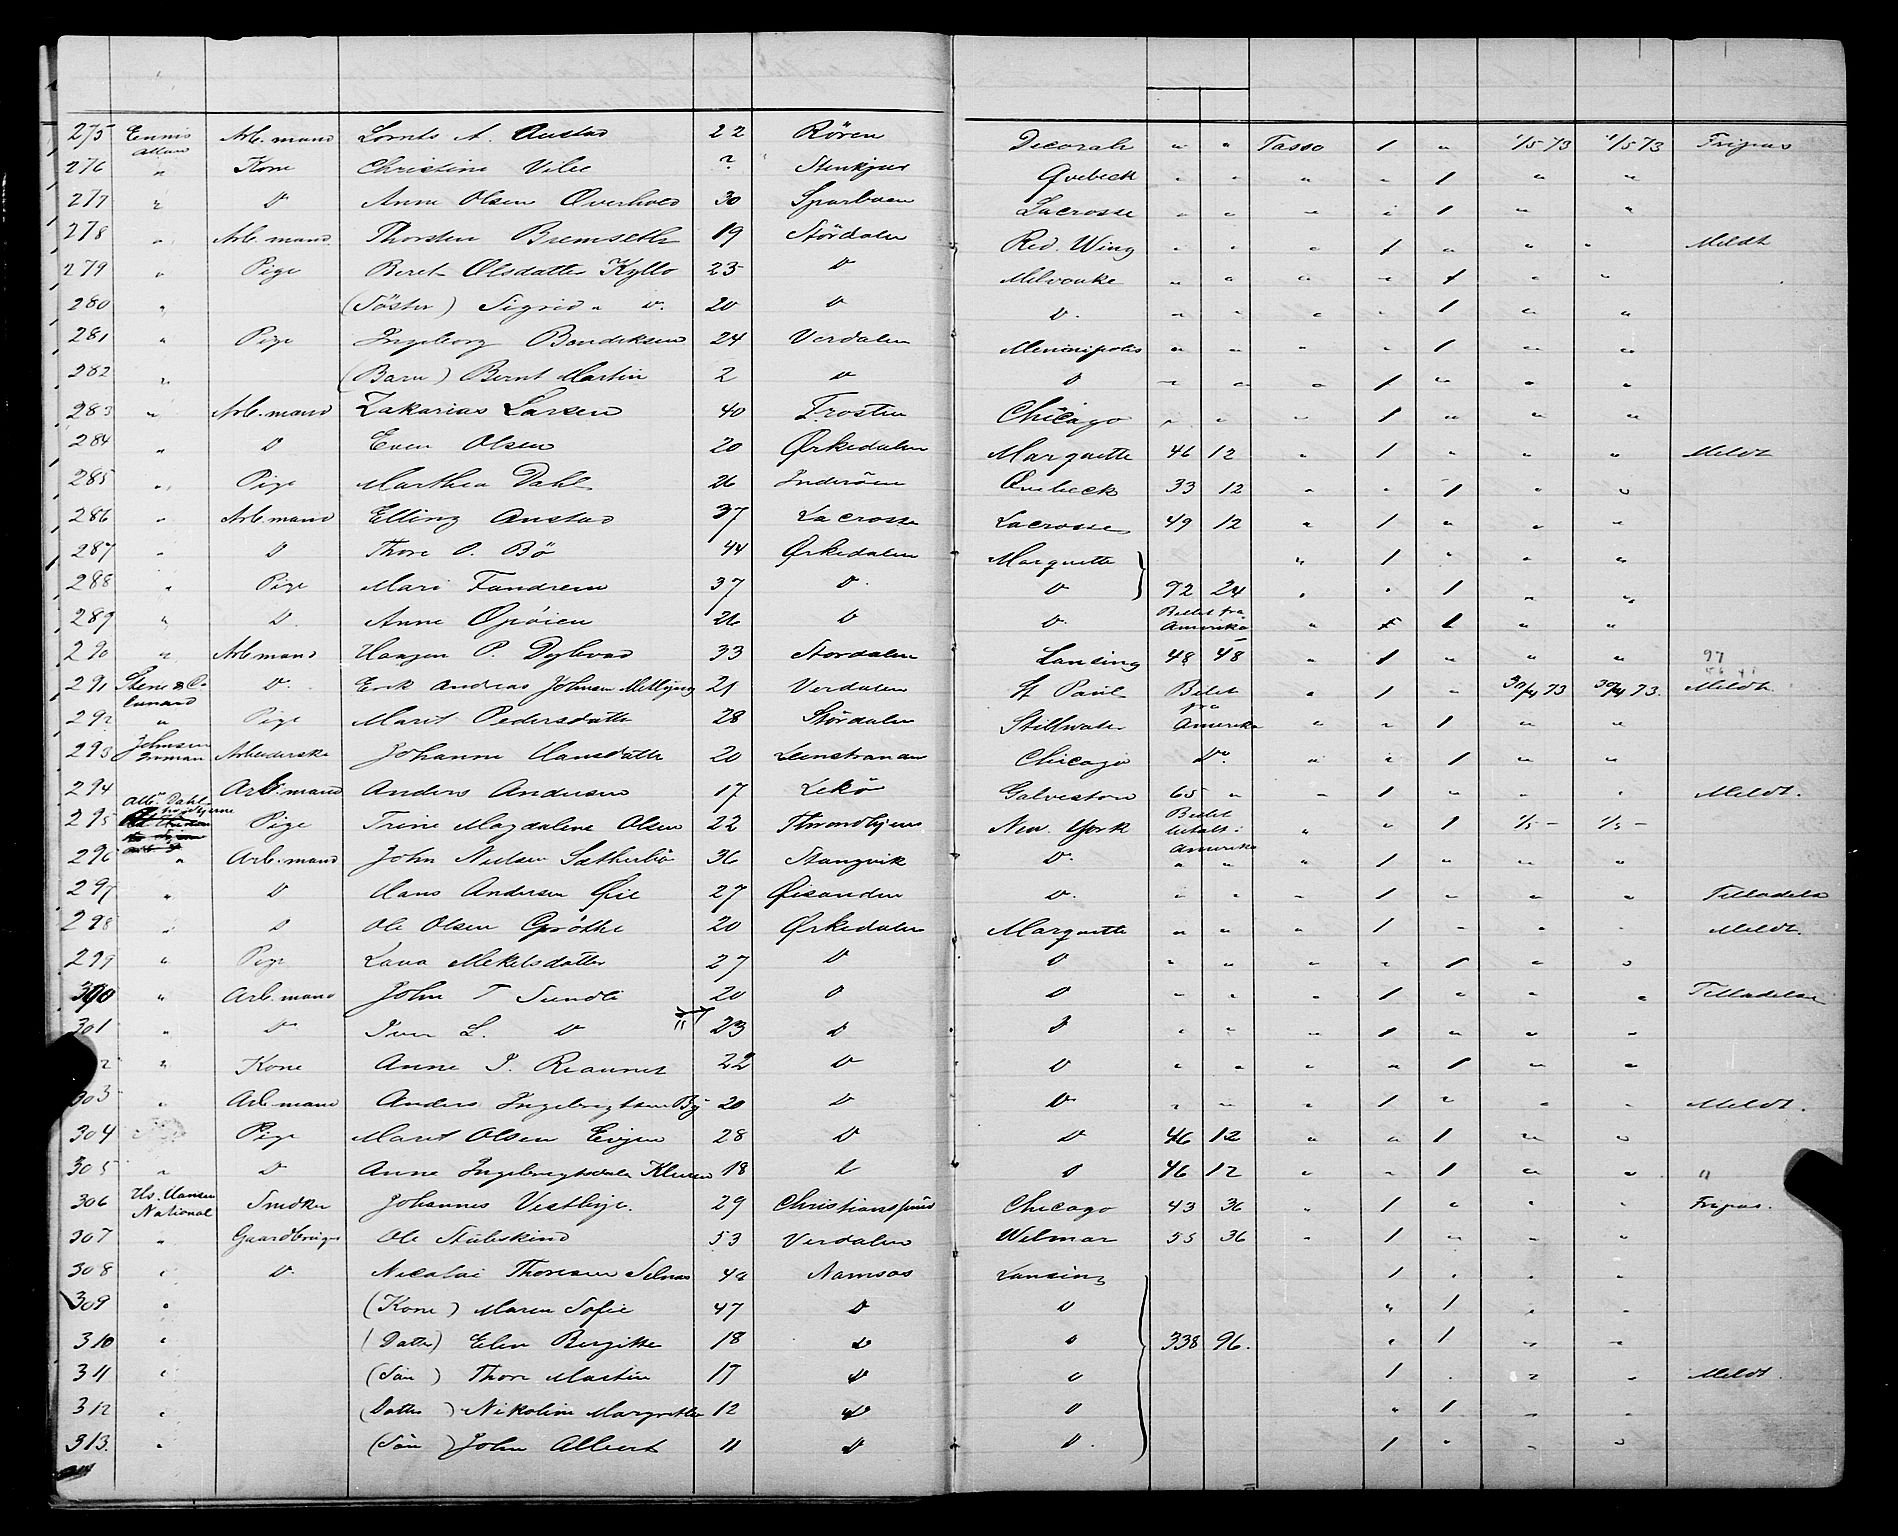 275 Ennis Allan Arb. mand Lornts A. Austad 22 Rören Decorah " " Tasso 1 " 1/5 73 1/5 73 Fripas
276 " Kone Christine 2 Stenkjær Qvebeck " " " " 1 " "
277 " D Anne Olsen Overhold 30 Sparboen Lacrosse " " " " 1 " "
278 " Arb. mand Thorsten Bremseth 19 Stördalen Red. Wing " " " 1 " " " Meldt
279 " Pige Beret Olsdatter Kyllo 23 D Milvouke " " " " 1 " "
280 " (Söster) Sigrid " D. 20 D D. " " " " 1 " "
281 " Pige Ingeborg Bendiksen 24 Verdalen Meninipolis " " " " 1 " "
282 " (Barn) Bernt Martin 2 D D " " " 1 " " "
283 " Arb. mand Zakarias Larsen 40 Frosten Chicago " " " 1 " " "
284 " D Even Olsen 20 Ørkedalen Marquette 46 12 " 1 " " " Meldt
285 " Pige Marthea Dahl 26 Inderöen Qvebeck 33 12 " " 1 " "
286 " Arb. mand Elling Austad 37 Lacrosse Lacrosse 49 12 " 1 " " "
287 " D Thore O. Bö 44 Ørkedalen Marquette " 1 " " "
288 " Pige Mari Fandrem 37 D D 92 24 " " 1 " "
289 " D. Anne Opöien 26 D D. Billet fra Amerika " 1 " "
290 " Arb mand Haagen P. 33 Stordalen Lansing 48 48 " 1 " " " 97
291 Stene & Co Cunard D. Erik Andreas Johnsen 21 Verdalen St Paul Billet fra " 1 " 30/4 73 30/4 73. Meldt
292 " Pige Marit Pedersdatter 28 Stördalen Stillwater Amerika " " 1 " "
293 Johnsen Inman Arbeiderske Johanna Hansdatter 20 Leinstranden Chicago Do. " " 1 " "
294 Arb. mand Anders Andersen 17 Lekö Galveston 65 " " 1 " " " Meldt.
295 Alb. Dahl Pige Trine Magdalene Olsen 22 Throndhjem New York Billet betalt i Amerika " " 1 1/5 — 1/5 —
296 " Arb. mand John Nielsen Sætherbö 36 Stangvik D. " " " 1 " " "
297 " D Hans Andersen Øie 27 Øisanden D. " " " 1 " " " Tilladelse
298 " D Ole Olsen Gröthe 20 Ørkedalen Marquette " " " 1 " " " Meldt.
299 " Pige Lava Mekelsdatter 27 D D " " " " 1 " "
300 " Arb. mand John T Sundli 20 D D " " " 1 " " " Tilladelse
301 " D Iver L. D 23 D D " " " 1 " " "
2 " Kone Anne J. 22 D D " " " " 1 " "
303 " Arb. mand Anders Ingebrigtsen By 20 D D " " " 1 " " " Meldt.
304 Pige Marit Olsen Evjen 28 D D 46 12 " " 1 " "
305 " D Anne Ingebrigtsdatter 18 D D 46 12 " " 1 " " "
306 Hs. Hansen National Snedker Johannes Vestbye. 29 Christianssund Chicago 43 36 " 1 " " " Fripas.
307 " Gaardbruger Ole Stubskind 53 Verdalen Wilmar 55 36 " 1 " " "
308 " D. Nicolai Thoresen Selnas 42 Namsos Lansing 1 " " "
309 " (Kone) Maren Sofie 47 D D " 1 " "
310 " (Datter) Elen Bergitte 18 D D 338 96. " 1 " "
311 " (Sön) Thore Martin 17 D D 1 " " " Meldt.
312 " (Datter) Nikoline Margrethe 12 D D " 1 " "
313. " (Sön) John Albert 11 D D. 1 " " "